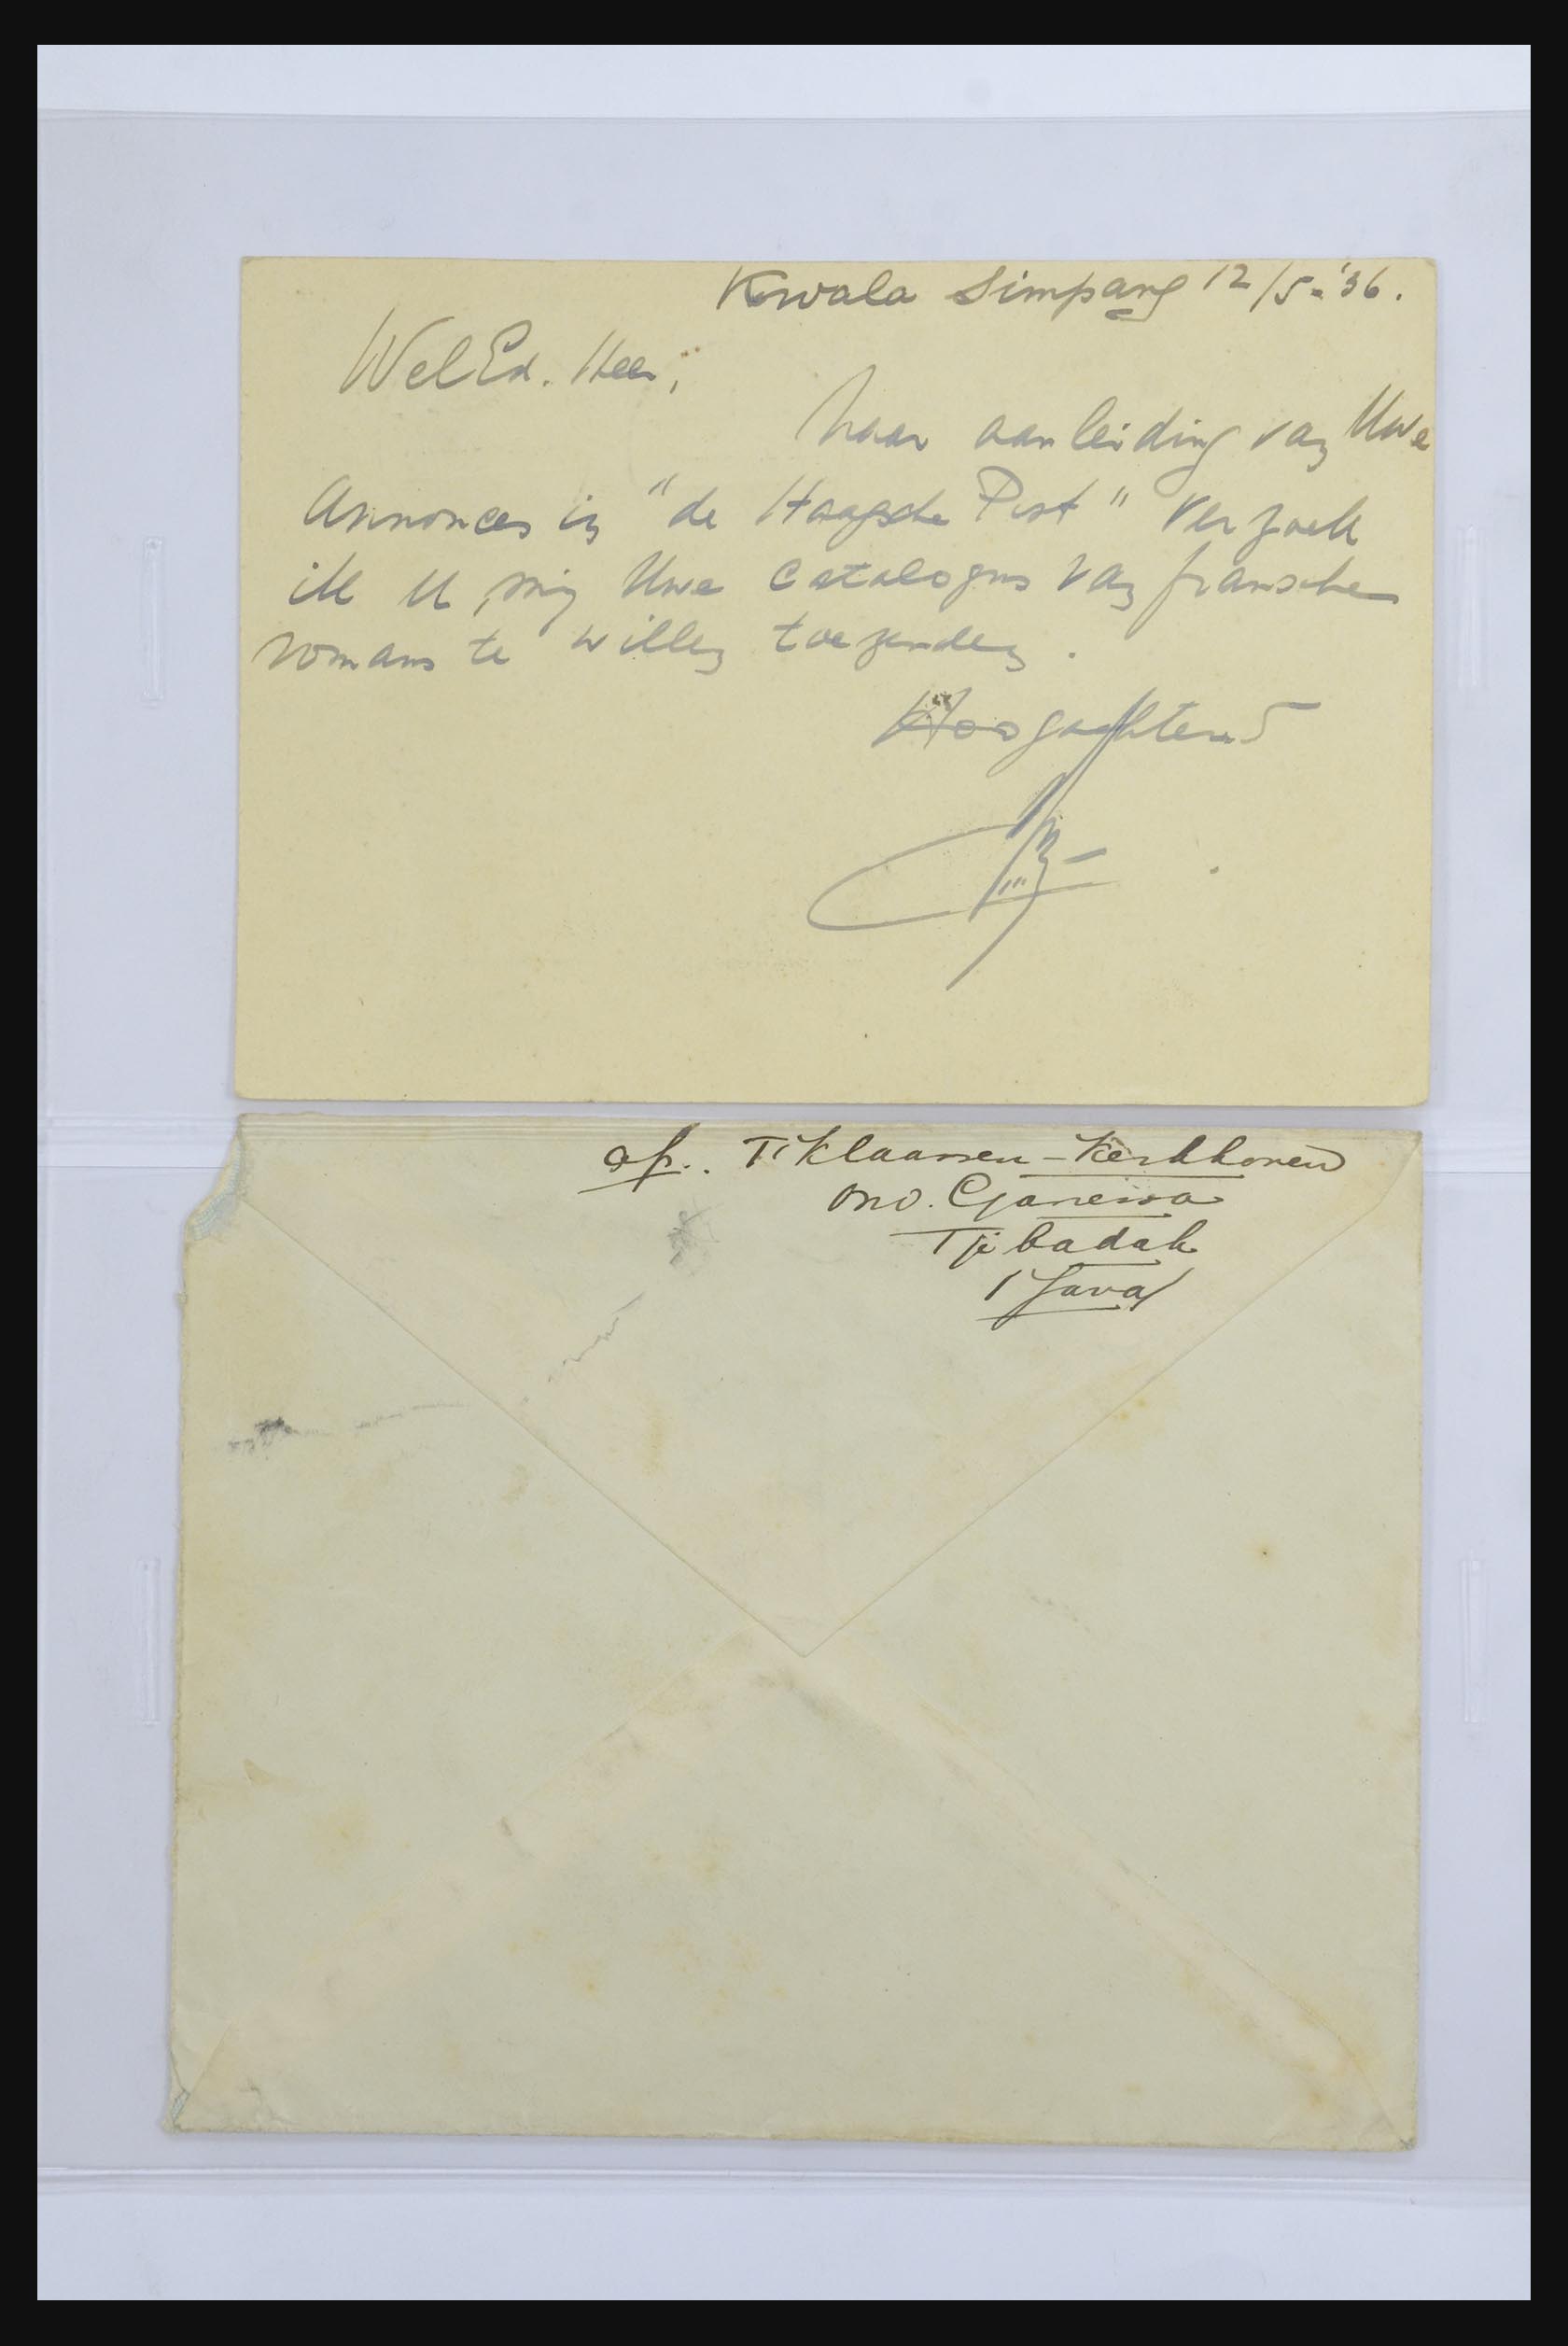 Kwala Simpang 12/5-'36.
WelEd. Heer,
Naar aanleiding van Uwe
Annonces in "de Haagsche Post" verzoek
ik U, mij Uwe Catalogus van fransche
romans te willen toezenden.
Hoogachtend
af.. T. Klaassen-Kerkhoven
Ond. Ganessa
Tjibadak
Java